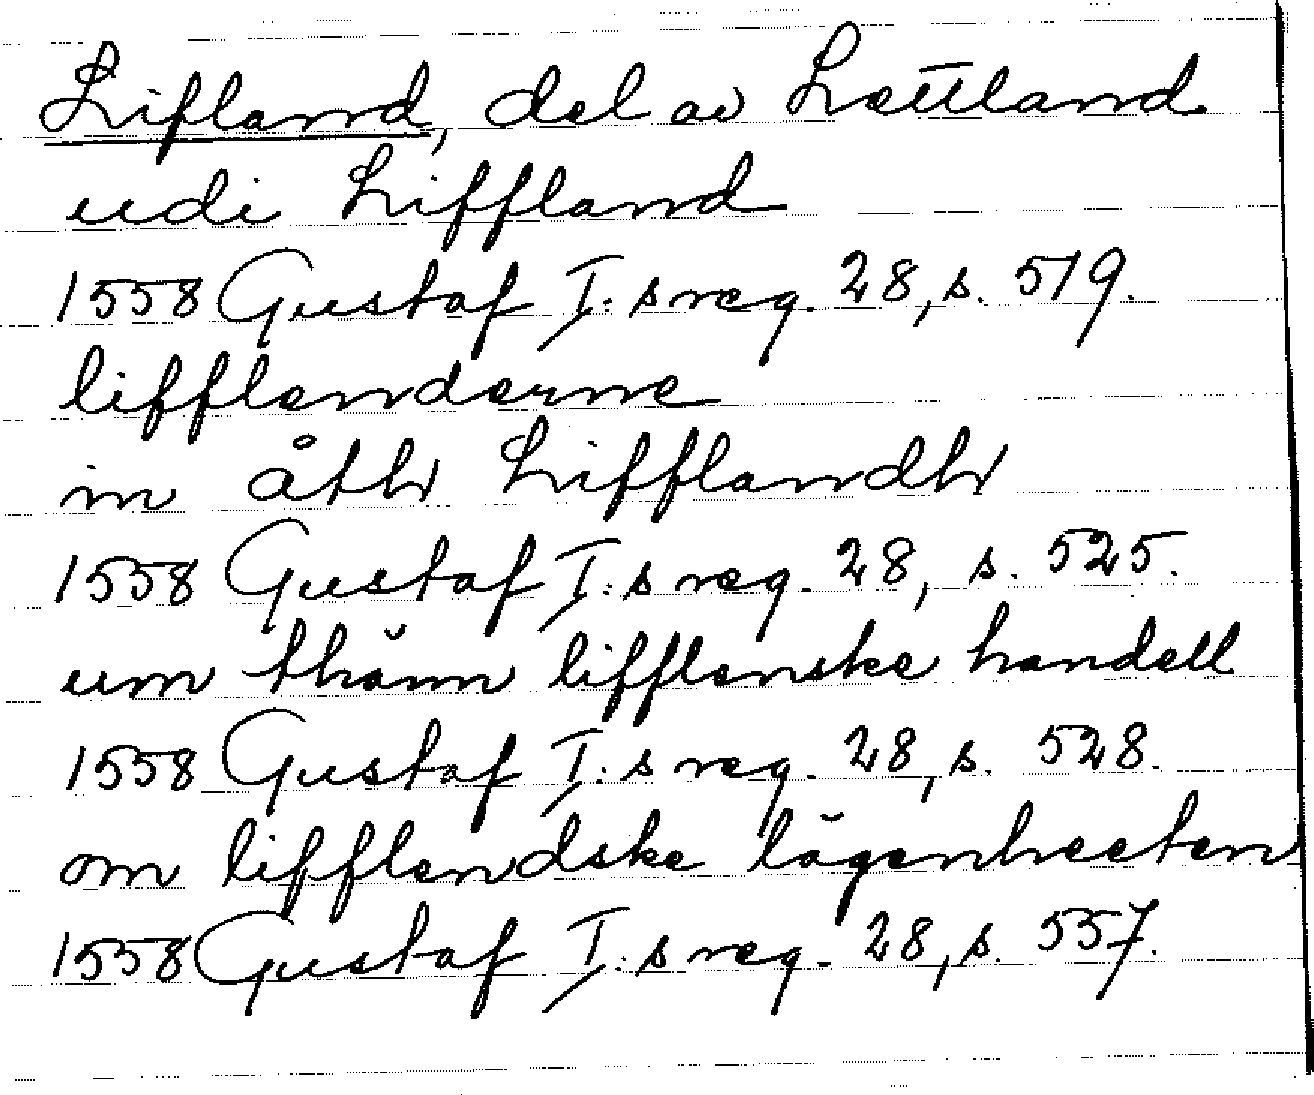 Lifland, del av Lettland
udi Liffland
1558 Gustaf I:s reg. 28, s. 519.
lifflenderne
in åth Lifflandh
1558 Gustaf I:s reg. 28, s. 525.
um thänn lifflenske handell
1558 Gustaf I:s reg. 28, s. 528.
om lifflendske lägenheeten
1558 Gustaf I:s reg. 28, s. 557.